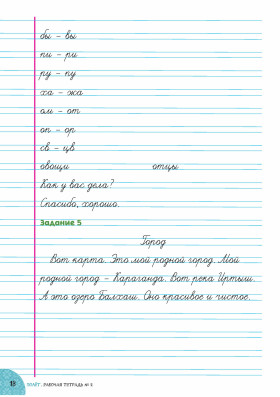 бы – вы
пи – ри
ру – пу
ха – жа
ом – от
оп – ор
св – цв
овощи отцы
Как у вас дела?
Спасибо, хорошо.
Задание 5
Город
Вот карта. Это мой родной город. Мой
родной город – Караганда. Вот река Иртыш.
А это озеро Балхаш. Оно красивое и чистое.
РАБОЧАЯ ТЕТРАДЬ №